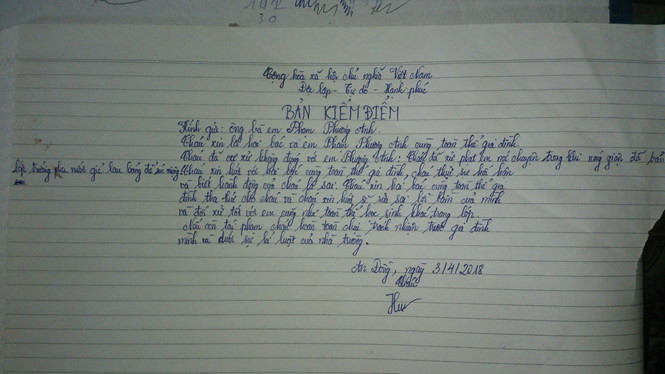 Cộng hòa xã hội chủ nghĩa Việt Nam
Độc lập - Tự do - Hạnh phúc
BẢN KIỂM ĐIỂM
Kính gửi: Ông bà em Phạm Phương Anh.
Cháu xin lỗi hai bác và em Phạm Phương Anh cùng toàn thể gia đình.
Cháu đã cư xử không đúng với em Phương Anh: Cháu đã xử phạt em nói chuyện trong khi nóng giận đã bắt
lớp trưởng pha nước giẻ lau bảng để súc miệng. Cháu xin hứa với hai bác cùng toàn thể gia đình, cháu thực sự hối hận
và biết hành động của cháu là sai. Cháu xin hai bác cùng toàn thể gia
đình tha thứ cho cháu và cháu xin hứa sẽ sửa sai lỗi lầm của mình
và đối xử tốt với em cũng như toàn thể học sinh khác trong lớp.
Nếu còn tái phạm cháu hoàn toàn chịu trách nhiệm trước gia đình
mình và dưới sự kỉ luật của nhà trường.
An Đồng, ngày 3/4/2018